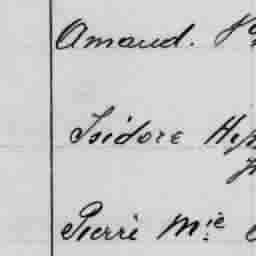 Amand.
Isidore
Pierre Mie